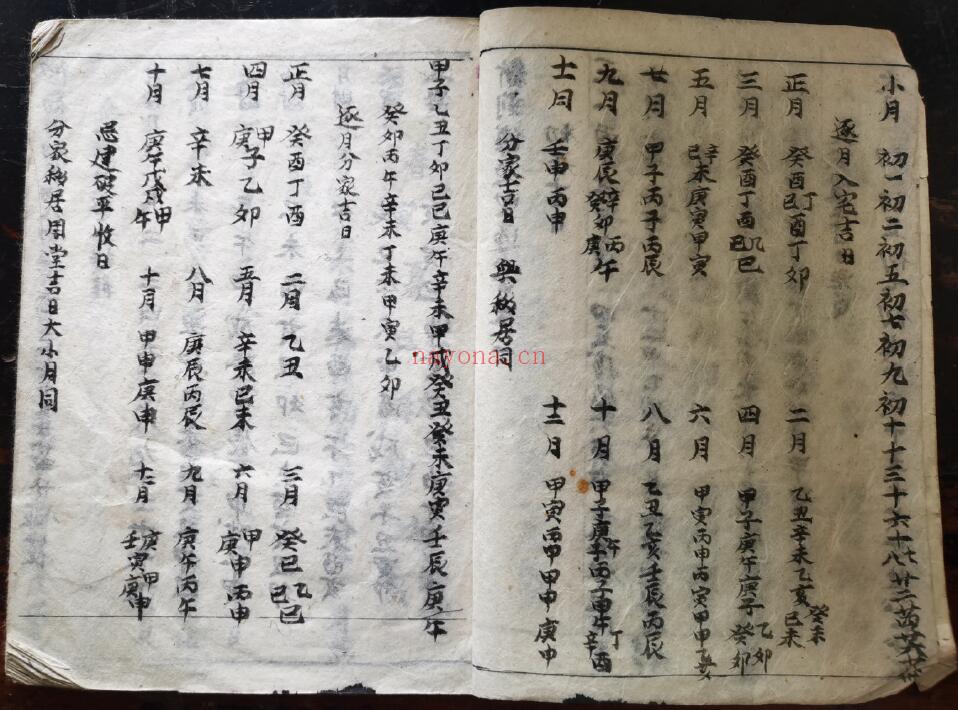 小月 初一初二初五初七初九初十十三十六十八
逐月入宅吉日
正月 癸酉丁酉己酉丁卯 二月 乙丑辛未乙亥己未癸未
三月 癸酉丁酉乙巳己巳 四月 甲子庚午庚子癸卯乙卯
五月 辛未己未庚寅甲寅 六月 甲寅丙申丙寅甲申
七月 甲子丙子丙辰 八月 乙丑乙亥壬辰丙辰
九月 庚辰辛卯癸卯丙午庚午 十月 甲子庚子
十一月 壬申丙申 十二月 甲寅丙甲甲申庚申
分家吉日 與移居同
甲子乙丑丁卯己巳庚午辛未甲戌癸丑癸未庚寅壬辰庚午
癸卯丙午辛未丁未甲寅乙卯
逐月分家吉日
正月 癸酉丁酉 二月 乙丑 三月 癸巳乙巳己巳
四月 甲子庚子乙卯 五月 辛未己未 六月 甲申庚申丙申
七月 辛未 八月 庚辰丙辰 九月 庚午丙午
十月 庚午戊戌甲午 十一月 甲申庚申 十二月 庚申甲申壬寅庚申
忌建破平收日
分家移居周堂吉日大小月同
nayona.cn